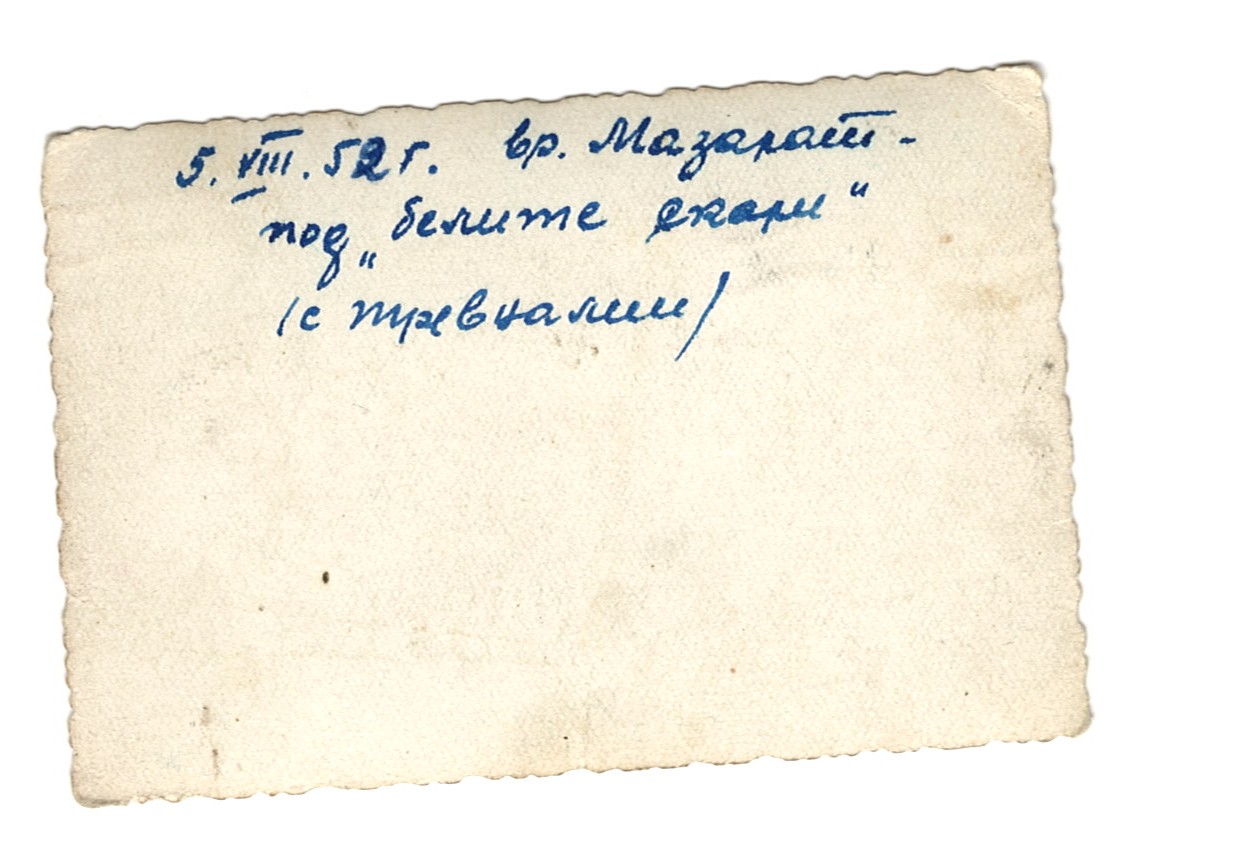 5. VIII. 52 г. вр. Мазалат -
под „белите скали“
(с тревналии)